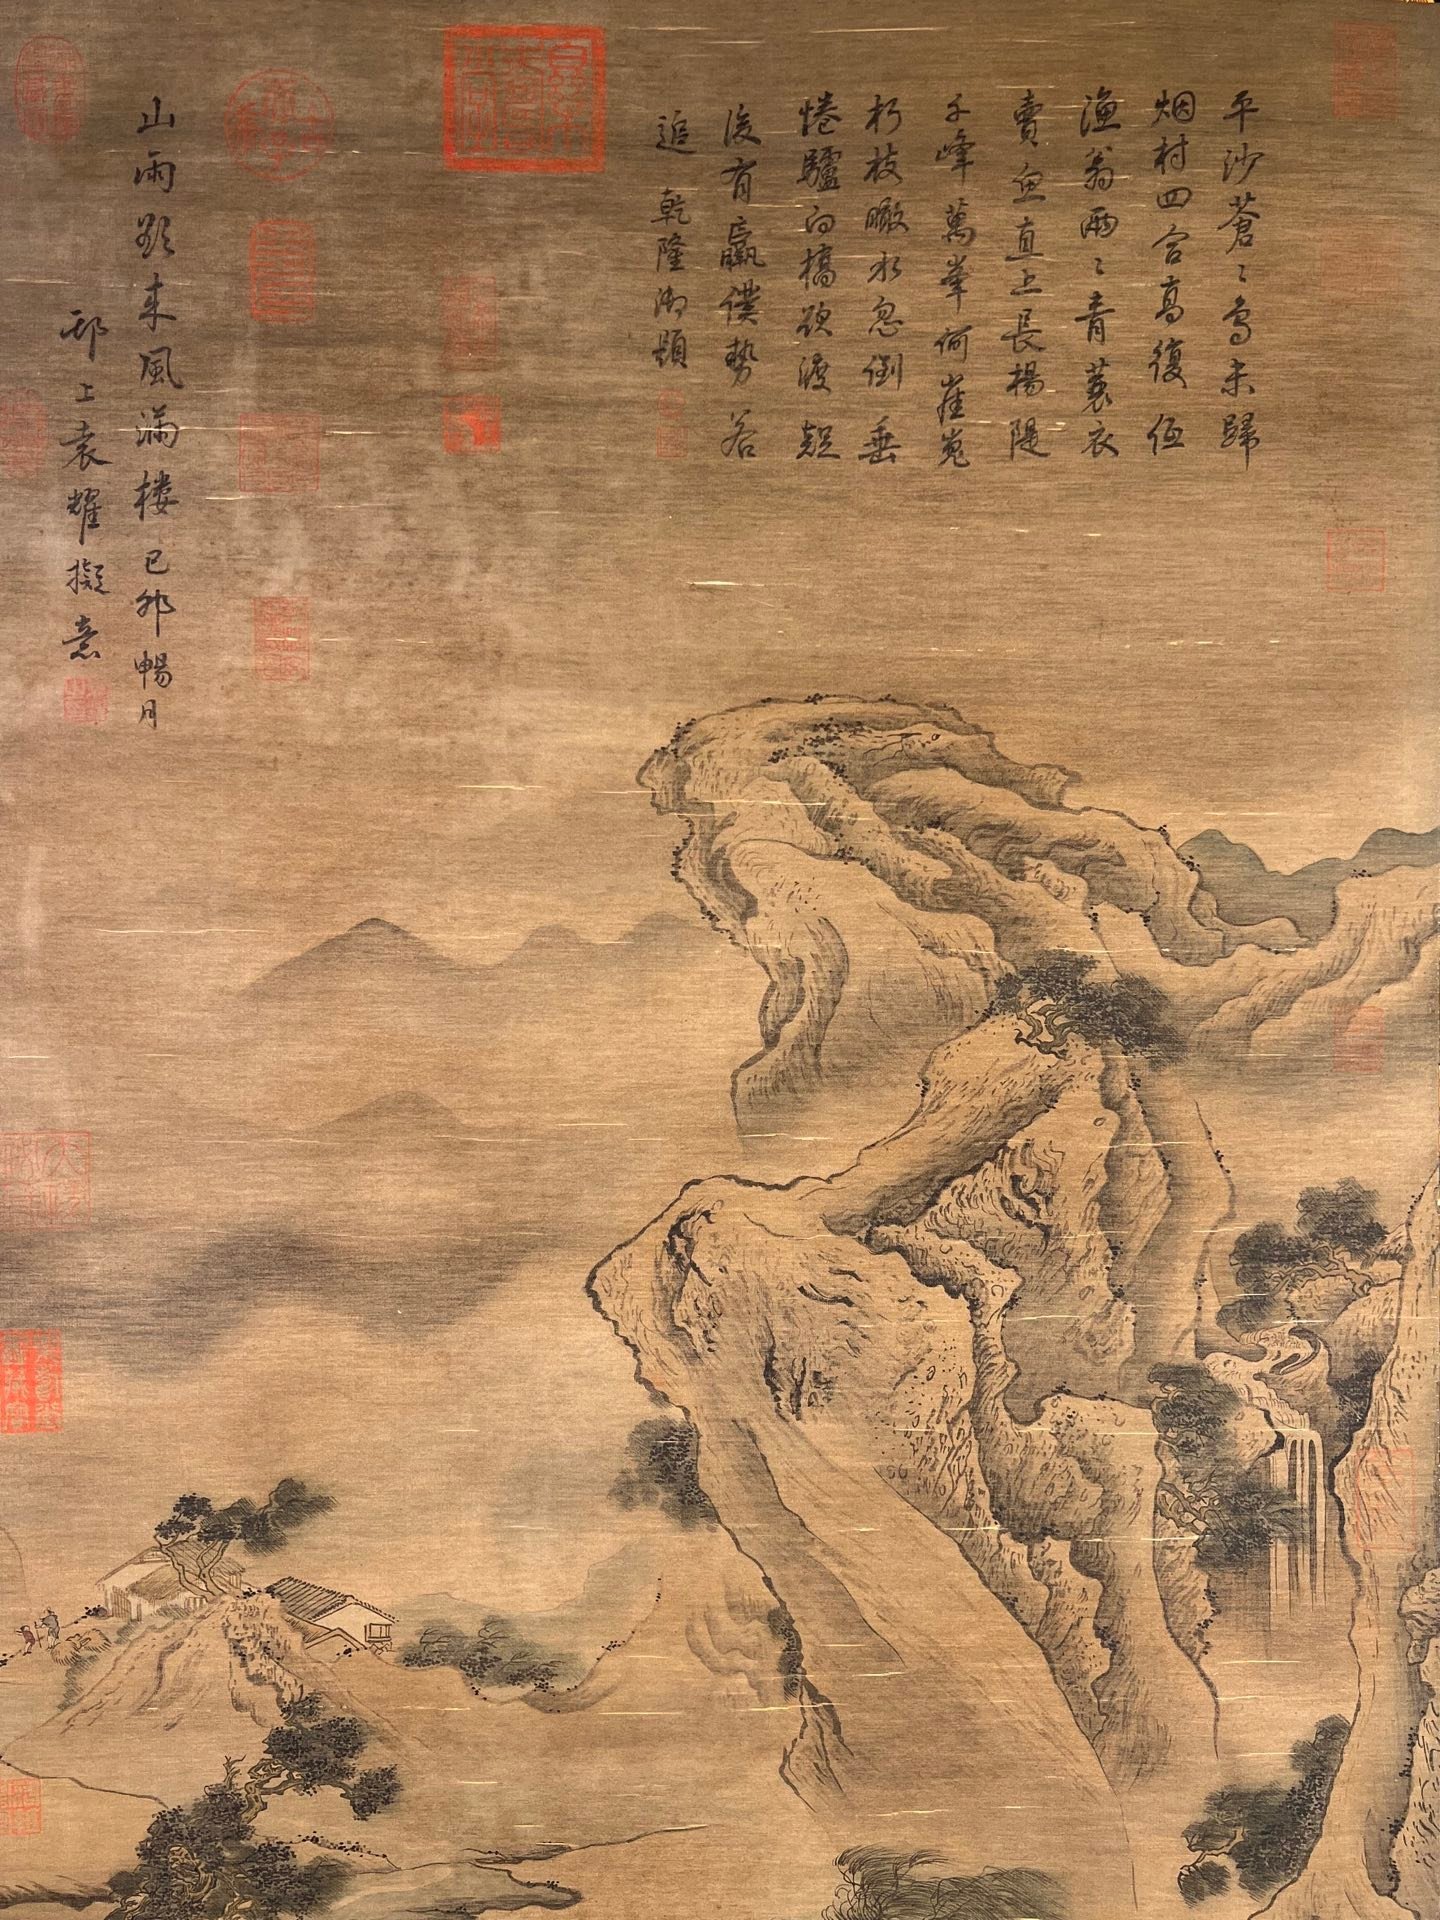 平沙蒼〻鳥未歸
烟村四合高復低
漁翁兩〻青蓑衣
賣魚直上長楊隄
千峰萬峯何崔嵬
朽枝瞰水忽倒垂
憊驢向橋欲渡超
後有羸僕勢若
追 乾隆御題
山雨欲来風滿樓 己卯暢月
邗上袁耀擬意